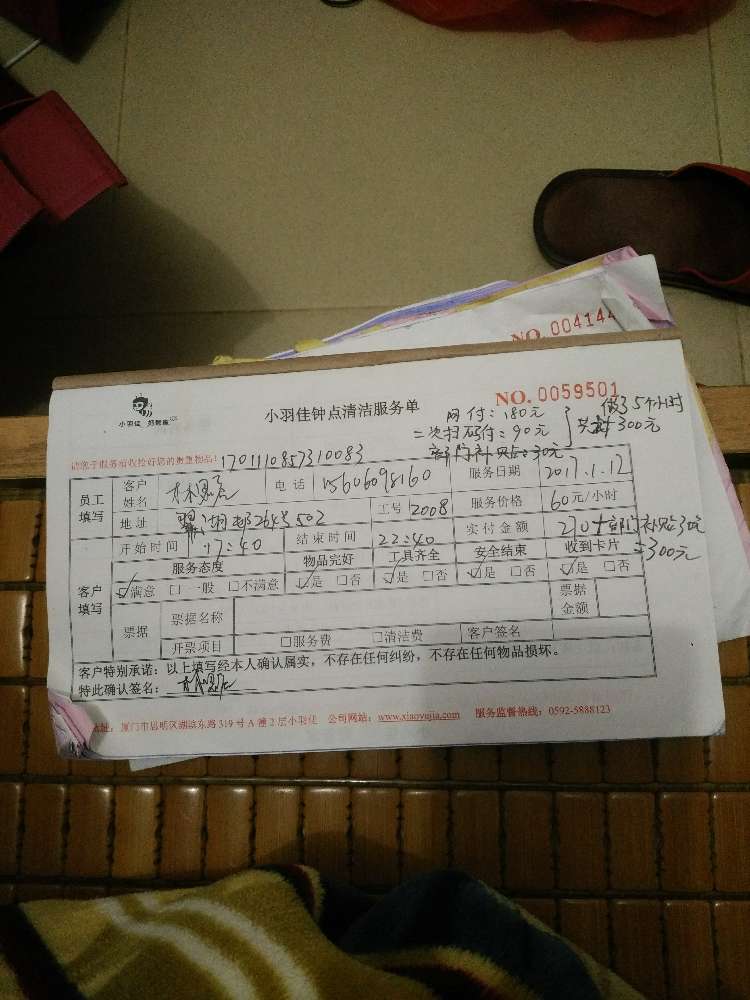 NO. 004144
小羽佳 妈妈象
小羽佳钟点清洁服务单
NO. 0059501
网付:180元
二次扫码付:90元
部门补贴:30元
共计300元
做了5小时
请您于服务前收捡好您的贵重物品!
1701110857310083
员工填写 客户姓名 电话 15606098160 服务日期 2017.1.12
地址 264号502 工号 2008 服务价格 60元/小时
开始时间 17:40 结束时间 22:40 实付金额 270+部门补贴30元=300元
客户填写 服务态度 物品完好 工具齐全 安全结束 收到卡片
☑满意 □一般 □不满意 ☑是 □否 ☑是 □否 ☑是 □否 ☑是 □否
票据 票据名称 票据金额
开票项目 □服务费 □清洁费 客户签名
客户特别承诺:以上填写经本人确认属实,不存在任何纠纷,不存在任何物品损坏。
特此确认签名:
地址:厦门市思明区湖滨东路319号A幢2层小羽佳 公司网站:www.xiaoyujia.com 服务监督热线:0592-5888123